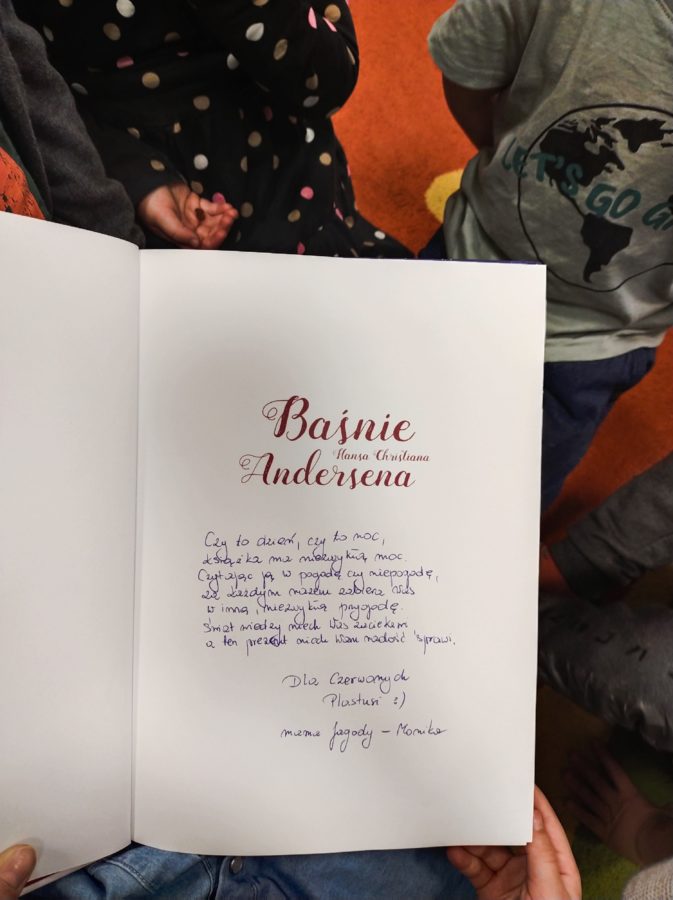 LET'S GO
Baśnie
Hansa Christiana
Andersena
Czy to dzień, czy to noc,
książka ma niezwykłą moc.
Czytając ją w pogodę czy niepogodę,
za każdym razem zabiera Was
w inną, niezwykłą przygodę.
Świat wiedzy niech Was zaciekawi
a ten prezent niech Wam radość sprawi.
Dla Czerwonych
Plastusi :)
mama Jagody - Monika